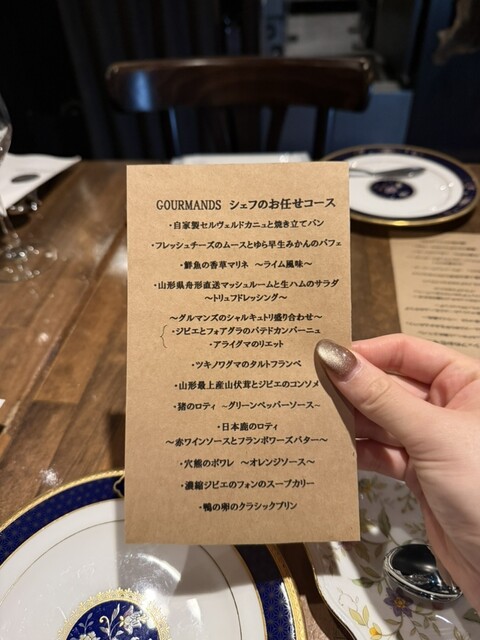 GOURMANDS シェフのお任せコース
・自家製セルヴェルドカニュと焼き立てパン
・フレッシュチーズのムースとゆら早生みかんのパフェ
・鮮魚の香草マリネ ～ライム風味～
・山形県舟形直送マッシュルームと生ハムのサラダ
～トリュフドレッシング～
～グルマンズのシャルキュトリ盛り合わせ～
・ジビエとフォアグラのパテドカンパーニュ
・アライグマのリエット
・ツキノワグマのタルトフランベ
・山形最上産山伏茸とジビエのコンソメ
・猪のロティ ～グリーンペッパーソース～
・日本鹿のロティ
～赤ワインソースとフランボワーズバター～
・穴熊のポワレ ～オレンジソース～
・濃縮ジビエのフォンのスープカリー
・鴨の卵のクラシックプリン